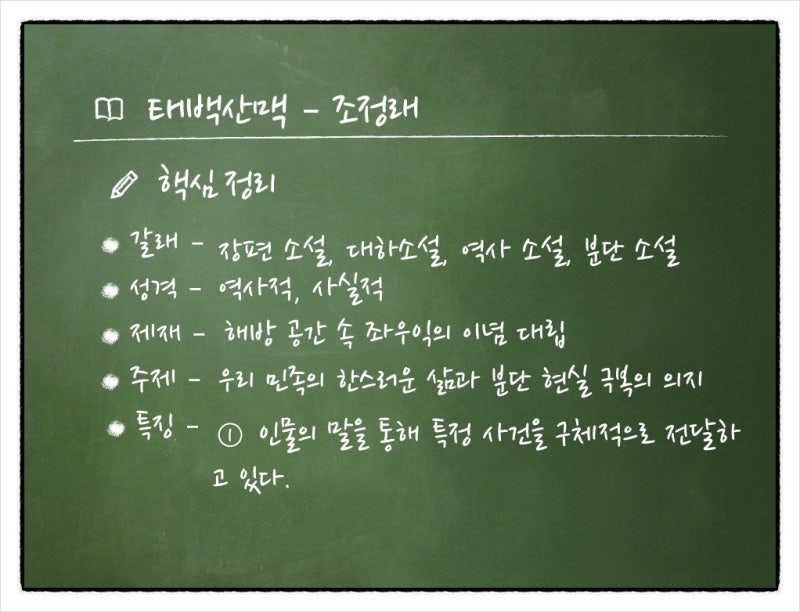 태백산맥 - 조정래
핵심 정리
갈래 - 장편 소설, 대하소설, 역사 소설, 분단 소설
성격 - 역사적, 사실적
제재 - 해방 공간 속 좌우익의 이념 대립
주제 - 우리 민족의 한스러운 삶과 분단 현실 극복의 의지
특징 - ① 인물의 말을 통해 특정 사건을 구체적으로 전달하
고 있다.